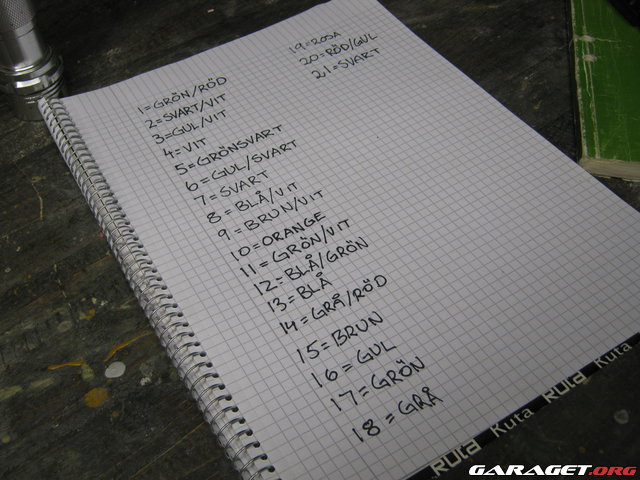 1=GRÖN/RÖD
2=SVART/VIT
3=GUL/VIT
4=VIT
5=GRÖNSVART
6=GUL/SVART
7=SVART
8=BLÅ/VIT
9=BRUN/VIT
10=ORANGE
11=GRÖN/VIT
12=BLÅ/GRÖN
13=BLÅ
14=GRÅ/RÖD
15=BRUN
16=GUL
17=GRÖN
18=GRÅ
19=ROSA
20=RÖD/GUL
21=SVART
Ruta Kuta Ruta Kuta
GARAGET.ORG